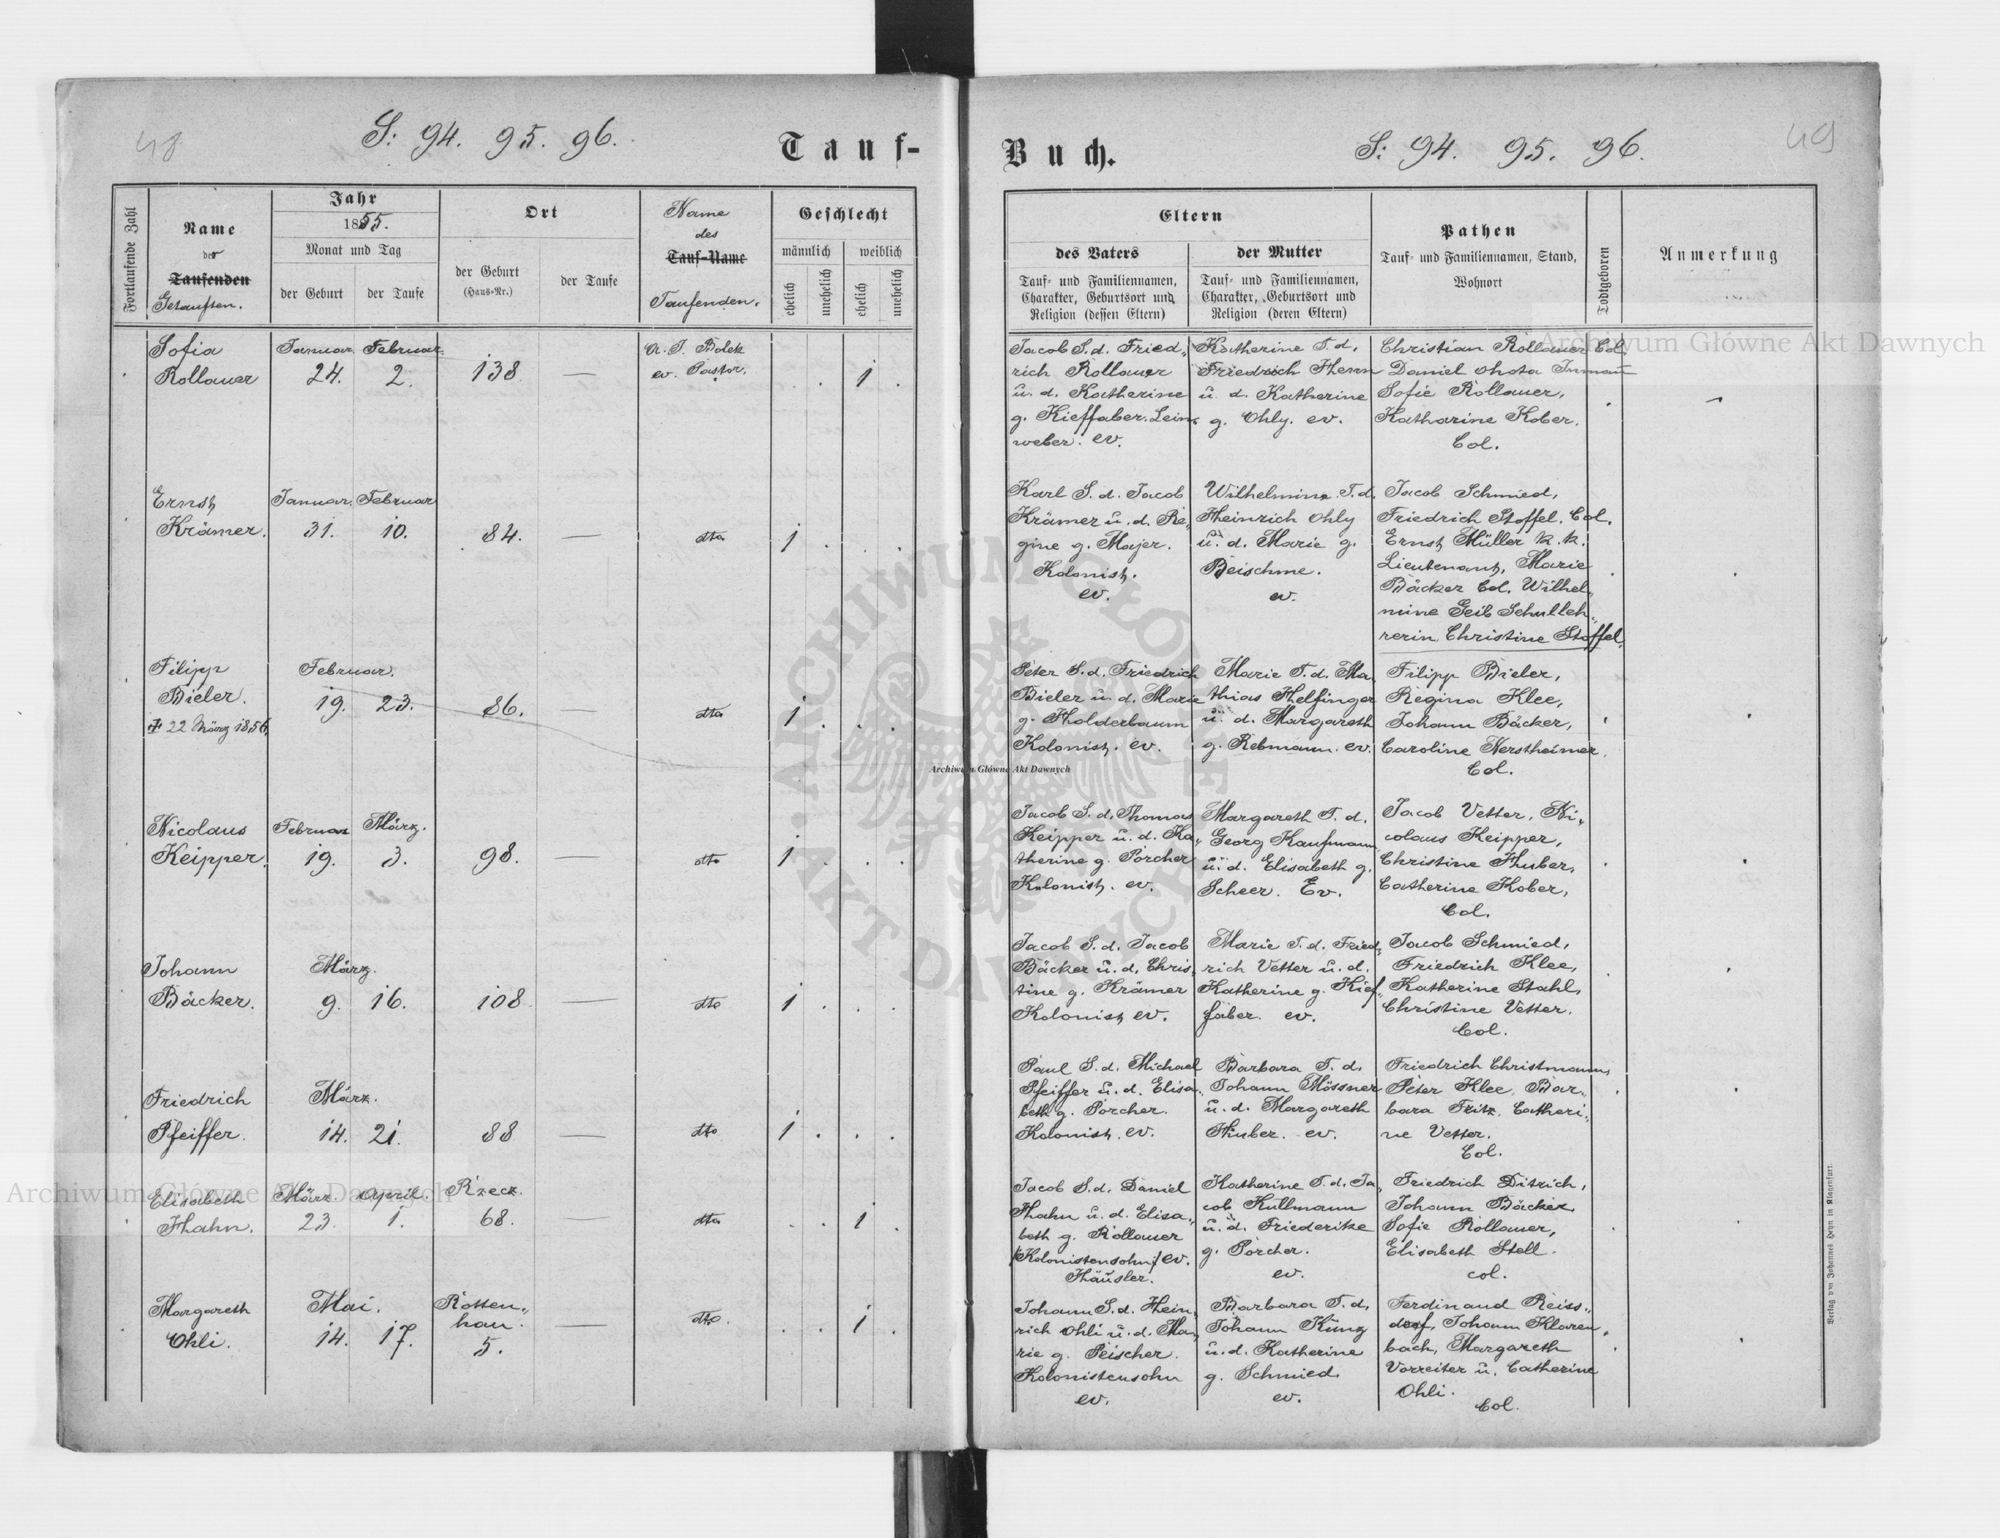 48
S: 94. 95. 96.
Tauf-
Fortlaufende Zahl
Name
der
Taufenden
Getauften.
Jahr
1855.
Monat und Tag
der Geburt
der Taufe
Ort
der Geburt
(Haus-Nr.)
der Taufe
Name
des
Tauf-Name
Taufenden.
Geschlecht
männlich
weiblich
ehelich
unehelich
ehelich
unehelich
Sofia Januar. Februar.
Rollauer 24. 2. 138 — 1
A. J. Bolek
ev. Pastor.
Ernst Januar. Februar
Krämer. 31. 10. 84. — dto 1
Filipp Februar.
Bieler. 19. 23. 86. — dto 1
22 März 1856.
Nicolaus Februar März.
Keipper. 19. 3. 98. — dto 1
Johann März.
Bäcker. 9. 16. 108 — dto 1
Friedrich März.
Pfeiffer. 14. 21. 88 — dto 1
Elisabeth März. April. Rzecz.
Hahn. 23. 1. 68. — dto 1
Margareth Mai. Rotten„
Ohli. 14. 17. hau. — dto 1
5.
Buch.
S: 94. 95. 96.
49
Eltern
des Vaters
Tauf- und Familiennamen,
Charakter, Geburtsort und
Religion (dessen Eltern)
der Mutter
Tauf- und Familiennamen,
Charakter, Geburtsort und
Religion (deren Eltern)
Pathen
Tauf- und Familiennamen, Stand,
Wohnort
Todtgeboren
Anmerkung
Jacob S. d. Fried„
rich Rollauer
u. d. Katherine
g. Kieffaber. Lein„
weber. ev.
Katherine T. d.
Friedrich Herrn
u. d. Katherine
g. Ohly. ev.
Christian Rollauer Col.
Daniel
Sofie Rollauer,
Katharine Kober.
Col.
Karl S. d. Jacob
Krämer u. d. Re„
gine g. Majer.
Kolonist.
ev.
Wilhelmine T. d.
Heinrich Ohly
u. d. Marie g.
Beischme.
ev.
Jacob Schmied,
Friedrich Stoffel. Col.
Ernst Müller k. k.
Lieutenant, Marie
Bäcker Col. Wilhel„
mine Geib Schulleh„
rerin Christine Stoffel.
Peter S. d. Friedrich
Bieler u. d. Marie
g. Holderbaum
Kolonist. ev.
Marie T. d. Ma„
thias Helfinger
u. d. Margareth
g. Rebmann. ev.
Filipp Bieler,
Regina Klee,
Johann Bäcker,
Caroline Nerstheimer.
Col.
Jacob S. d. Thomas
Keipper u. d. Ka„
therine g. Porcher
Kolonist. ev.
Margareth T. d.
Georg Kaufmann
u. d. Elisabeth g.
Scheer. Ev.
Jacob Vetter, Ni„
colaus Keipper,
Christine Huber,
Catherine Kober,
Col.
Jacob S. d. Jacob
Bäcker u. d. Chris„
tine g. Krämer
Kolonist ev.
Marie T. d. Fried„
rich Vetter u. d.
Katherine g. Kief„
faber. ev.
Jacob Schmied,
Friedrich Klee,
Katherine Stahl,
Christine Vetter.
Col.
Paul S. d. Michael
Pfeiffer u. d. Elisa„
beth g. Porcher.
Kolonist. ev.
Barbara T. d.
Johann Mössner
u. d. Margareth
Huber. ev.
Friedrich Christmann,
Peter Klee, Bar„
bara Fritz, Catheri„
ne Vetter.
Col.
Jacob S. d. Daniel
Hahn u. d. Elisa„
beth g. Rollauer
/Kolonistensohn/ ev.
Häusler.
Katherine T. d. Ja„
cob Kullmann
u. d. Friederike
g. Porcher.
ev.
Friedrich Ditrich,
Johann Bäcker,
Sofie Rollauer,
Elisabeth Stell.
col.
Johann S. d. Hein„
rich Ohli u. d. Ma„
rie g. Peischer.
Kolonistensohn
ev.
Barbara T. d.
Johann Künz
u. d. Katherine
g. Schmied.
ev.
Ferdinand Reiss„
dorf, Johann Klaren„
bach, Margareth
Vorreiter u. Catherine
Ohli.
Col.
Verlag von Johannes Heyn in Klagenfurt.
Archiwum Główne Akt Dawnych
Archiwum Główne Akt Dawnych
Archiwum Główne Akt Dawnych
ARCHIWUM GŁÓWNE AKT DAWNYCH